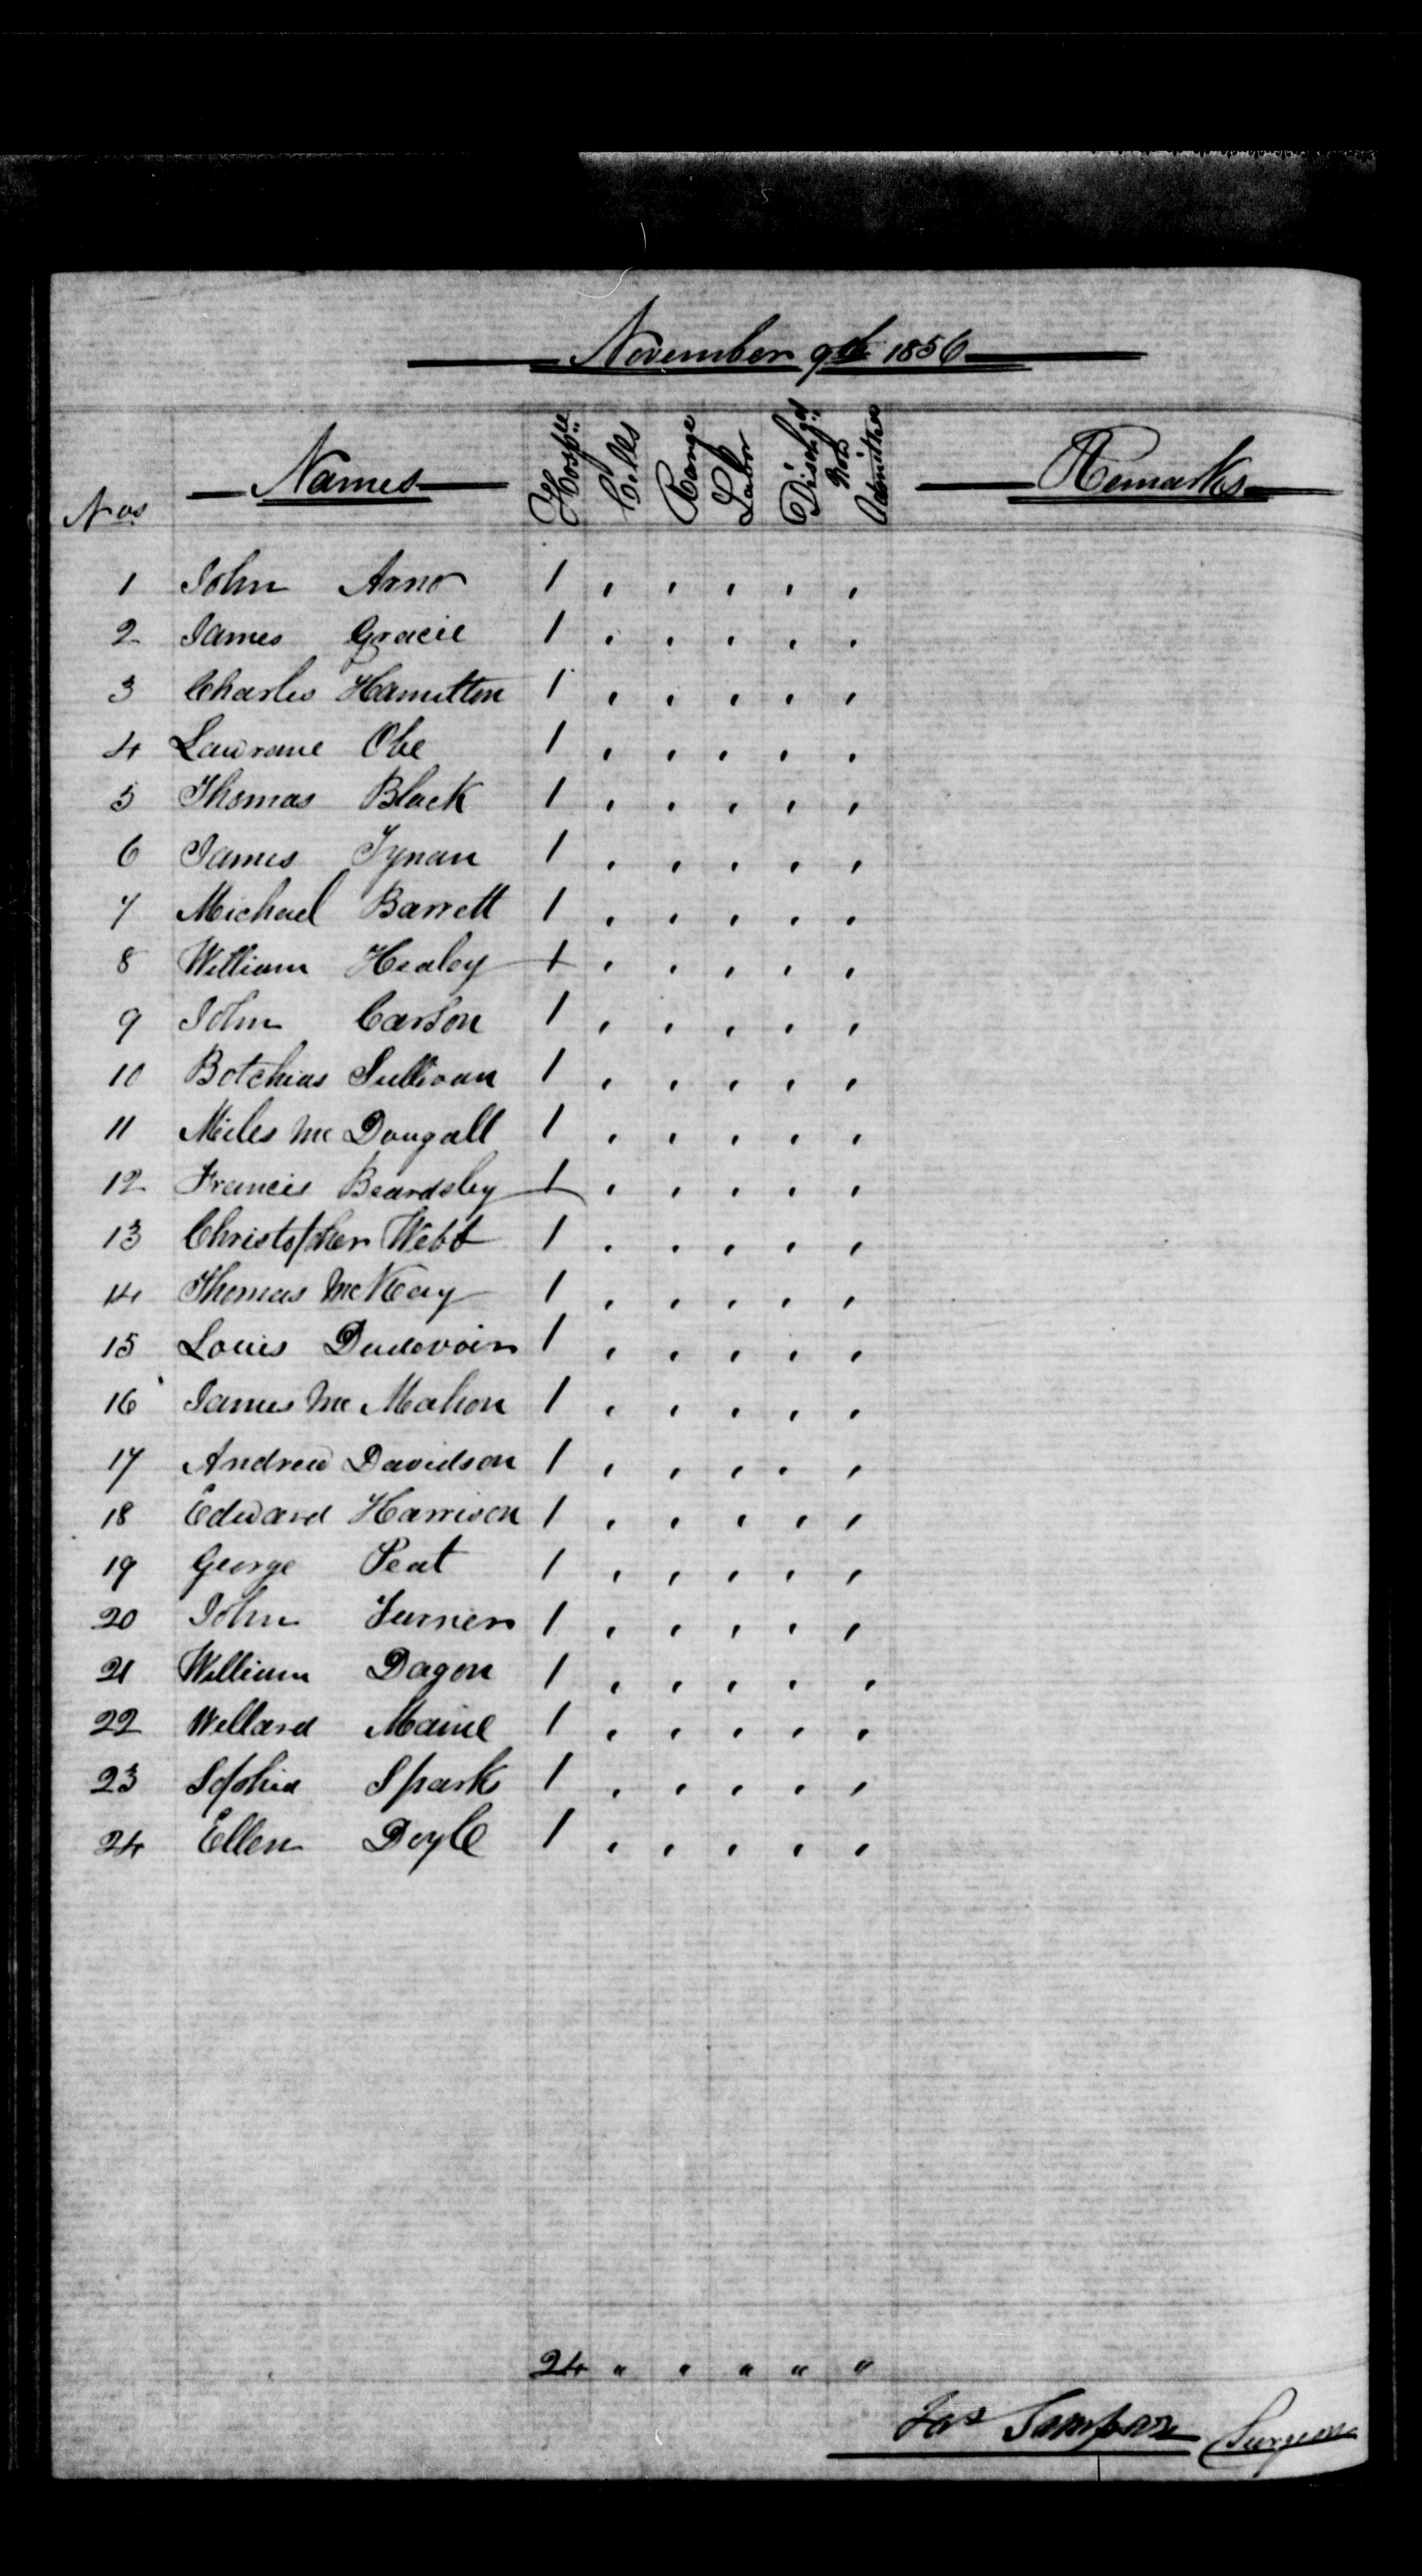 November 9th 1856
Nos Names Hospl Cells Range Labor Dischgd Not Admitted Remarks
1 John Arno 1 , , , , ,
2 James Gracie 1 , , , , ,
3 Charles Hamilton 1 , , , , ,
4 Lawrance Obe 1 , , , , ,
5 Thomas Black 1 , , , , ,
6 James Tynan 1 , , , , ,
7 Michael Barrett 1 , , , , ,
8 William Healey 1 , , , , ,
9 John Carson 1 , , , , ,
10 Botchias Sullivan 1 , , , , ,
11 Miles Mc Dougall 1 , , , , ,
12 Francis Beardsley 1 , , , , ,
13 Christopher Webb 1 , , , , ,
14 Thomas McKay 1 , , , , ,
15 Louis Dudevoir 1 , , , , ,
16 James Mc Mahon 1 , , , , ,
17 Andrew Davidson 1 , , , , ,
18 Edward Harrison 1 , , , , ,
19 George Peat 1 , , , , ,
20 John Turner 1 , , , , ,
21 William Dagon 1 , , , , ,
22 Willard Maine 1 , , , , ,
23 Sophia Spark 1 , , , , ,
24 Ellen Doyle 1 , , , , ,
24 " " " " "
Jas Sampson Surgeon